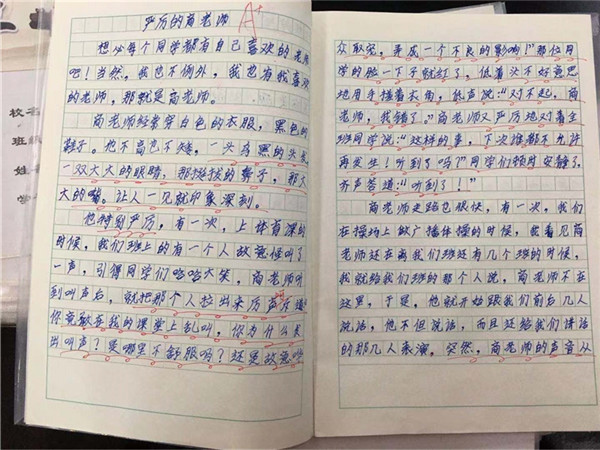 校名
班级
姓
学
严厉的商老师
A+
想必每个同学都有自己喜欢的老师
吧!当然,我也不例外,我也有我喜欢
的老师,那就是商老师。
商老师经常穿白色的衣服,黑色的
鞋子。他不高也不矮,一头乌黑的头发,
一双大大的眼睛,那挺拔的鼻子,那大
大的嘴。让人一见就印象深刻。
他特别严厉,有一次,上体育课的
时候,我们班上的有一个人故意俫叫了
一声,引得同学们哈哈大笑,商老师听
到叫声后,就把那个人拉出来厉声斥道
你竟敢在我的课堂上乱叫,你为什么发
出叫声?是哪里不舒服吗?还是故意哗
众取宠,弄成一个不良的影响!”那位同
学的脸一下子就红了,低着头不好意思
地用手捶着大角,低声说:“对不起,商
老师,我错了。”商老师又严厉地对着全
班同学说:“这样的事,下次谁都不允许
再发生!听到了吗?”同学们顿时安静了
齐声答道:“听到了!”
商老师走路也很快,有一次,我们
在操场上做广播体操的时候,我看见商
老师还在离我们班还有几个班的时候,
我就给我们班的那个人说,商老师不在
这里,于是,他就开始跟我们前后几人
说话,他不但说话,而且还给我们讲话
的那几人表演,突然,商老师的声音从